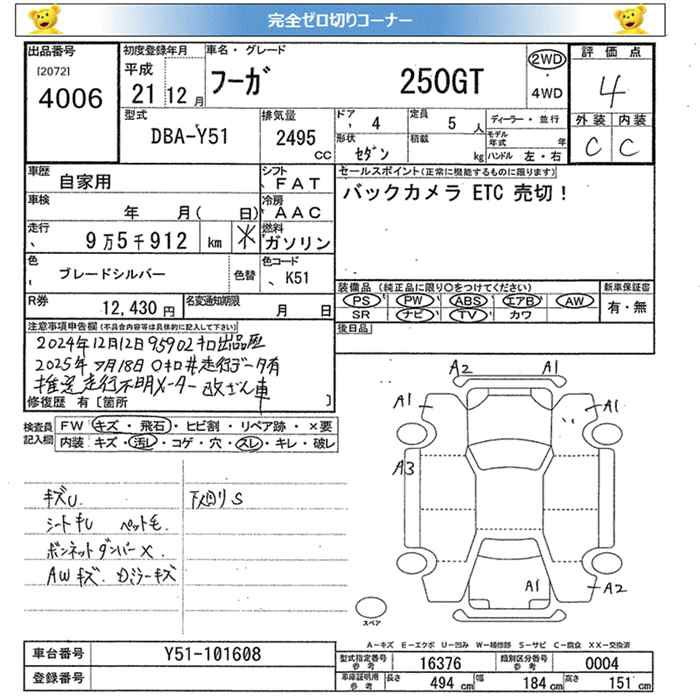 完全ゼロ切りコーナー
出品番号
[2072]
4006
初度登録年月
平成
21 12 月
車名・グレード
フーガ 250GT
2WD
・
4WD
評価点
4
外装 内装
C C
型式
DBA-Y51
排気量
2495
CC
ドア
4
定員
5 人
形状
セダン
積載
kg
ディーラー・並行
モデル年式 年
ハンドル 左・右
車歴
自家用
シフト
FAT
車検
年 月( 日)
冷房
AAC
走行
9万5千912 km
燃料
ガソリン
色
ブレードシルバー
色替
色コード
K51
R券
12,430 円
名変通知期限
月 日
セールスポイント(正常に機能するものに限ります)
バックカメラ ETC 売切!
装備品 (純正品に限り○をつけてください)
PS PW ABS エアB AW
SR ナビ TV カワ
新車保証書
有・無
後日品
注意事項申告欄(不具合内容等は具体的に記入して下さい)
2024年12月12日95902キロ出品歴
2025年 月18日0キロ 走行データ有
推定走行不明メーター改ざん車
修復歴 有〔箇所 〕
検査員記入欄
FW キズ・飛石・ヒビ割・リペア跡・×要
内装 キズ・汚レ・コゲ・穴・スレ・キレ・破レ
キズU.
シートキU ペット毛.
ボンネットダンパーX
AWキズ. ミラーキズ
下回りS
A2 A1
A1 A1
A3
A1 A2
スペア
A-キズ E-エクボ U-凹み W-補修跡 S-サビ C-腐食 XX-交換済
車台番号
Y51-101608
登録番号
型式指定番号
参考
16376
類別区分番号
参考
0004
車庫証明用
参考
長さ 494 cm
幅 184 cm
高さ 151 cm